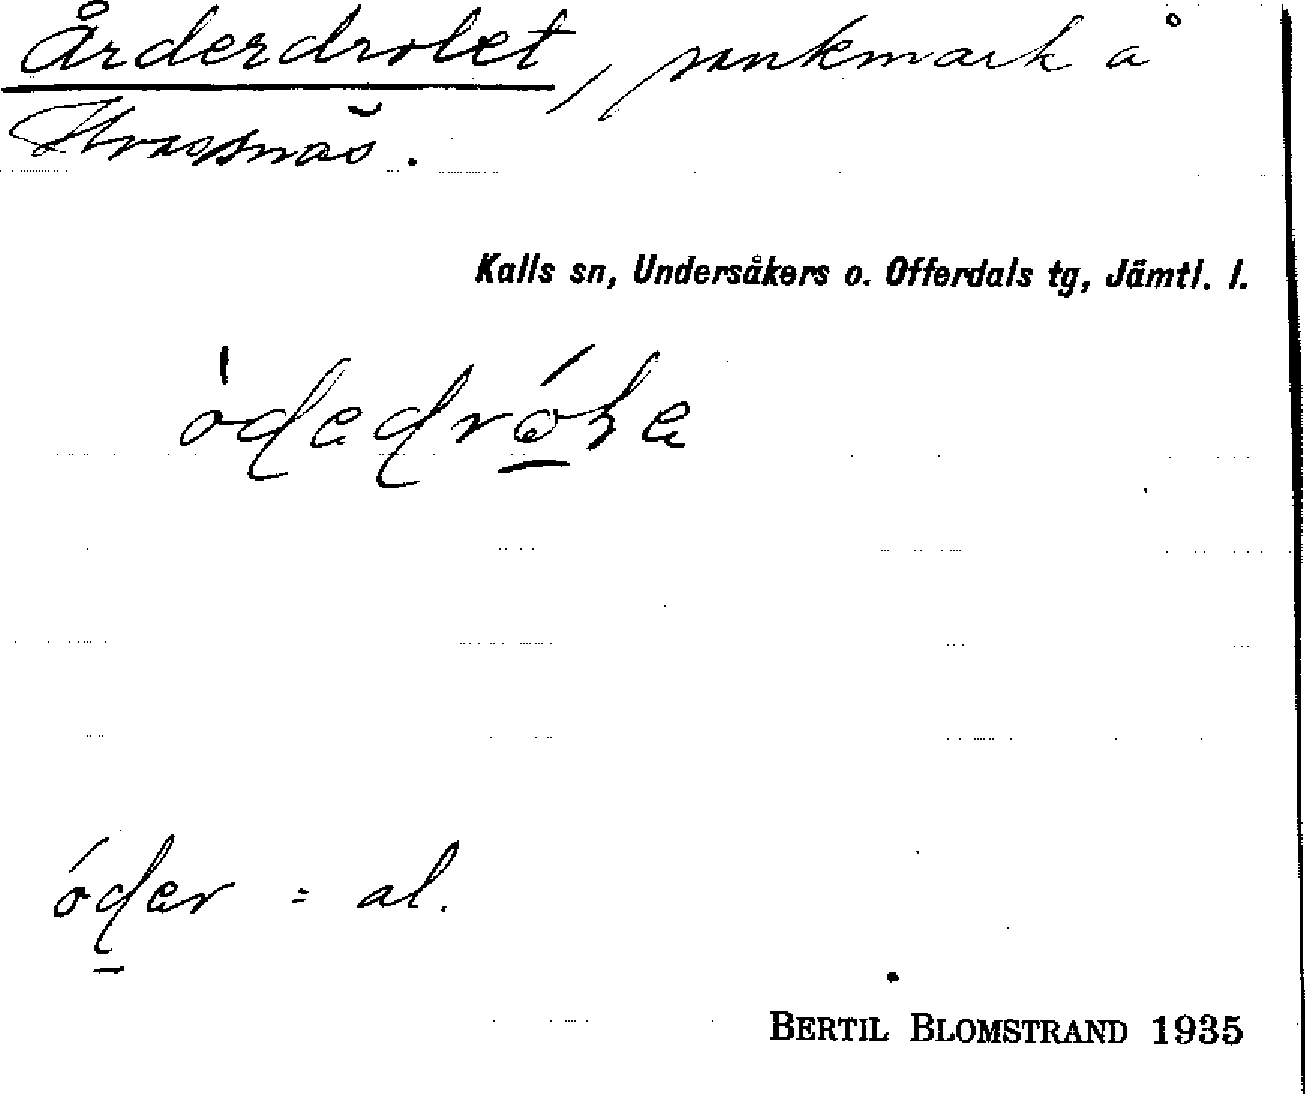 Årderdrolet, sankmark å
Hvassnäs.
Kalls sn, Undersåkers o. Offerdals tg, Jämtl. l.
óder = al.
BERTIL BLOMSTRAND 1935